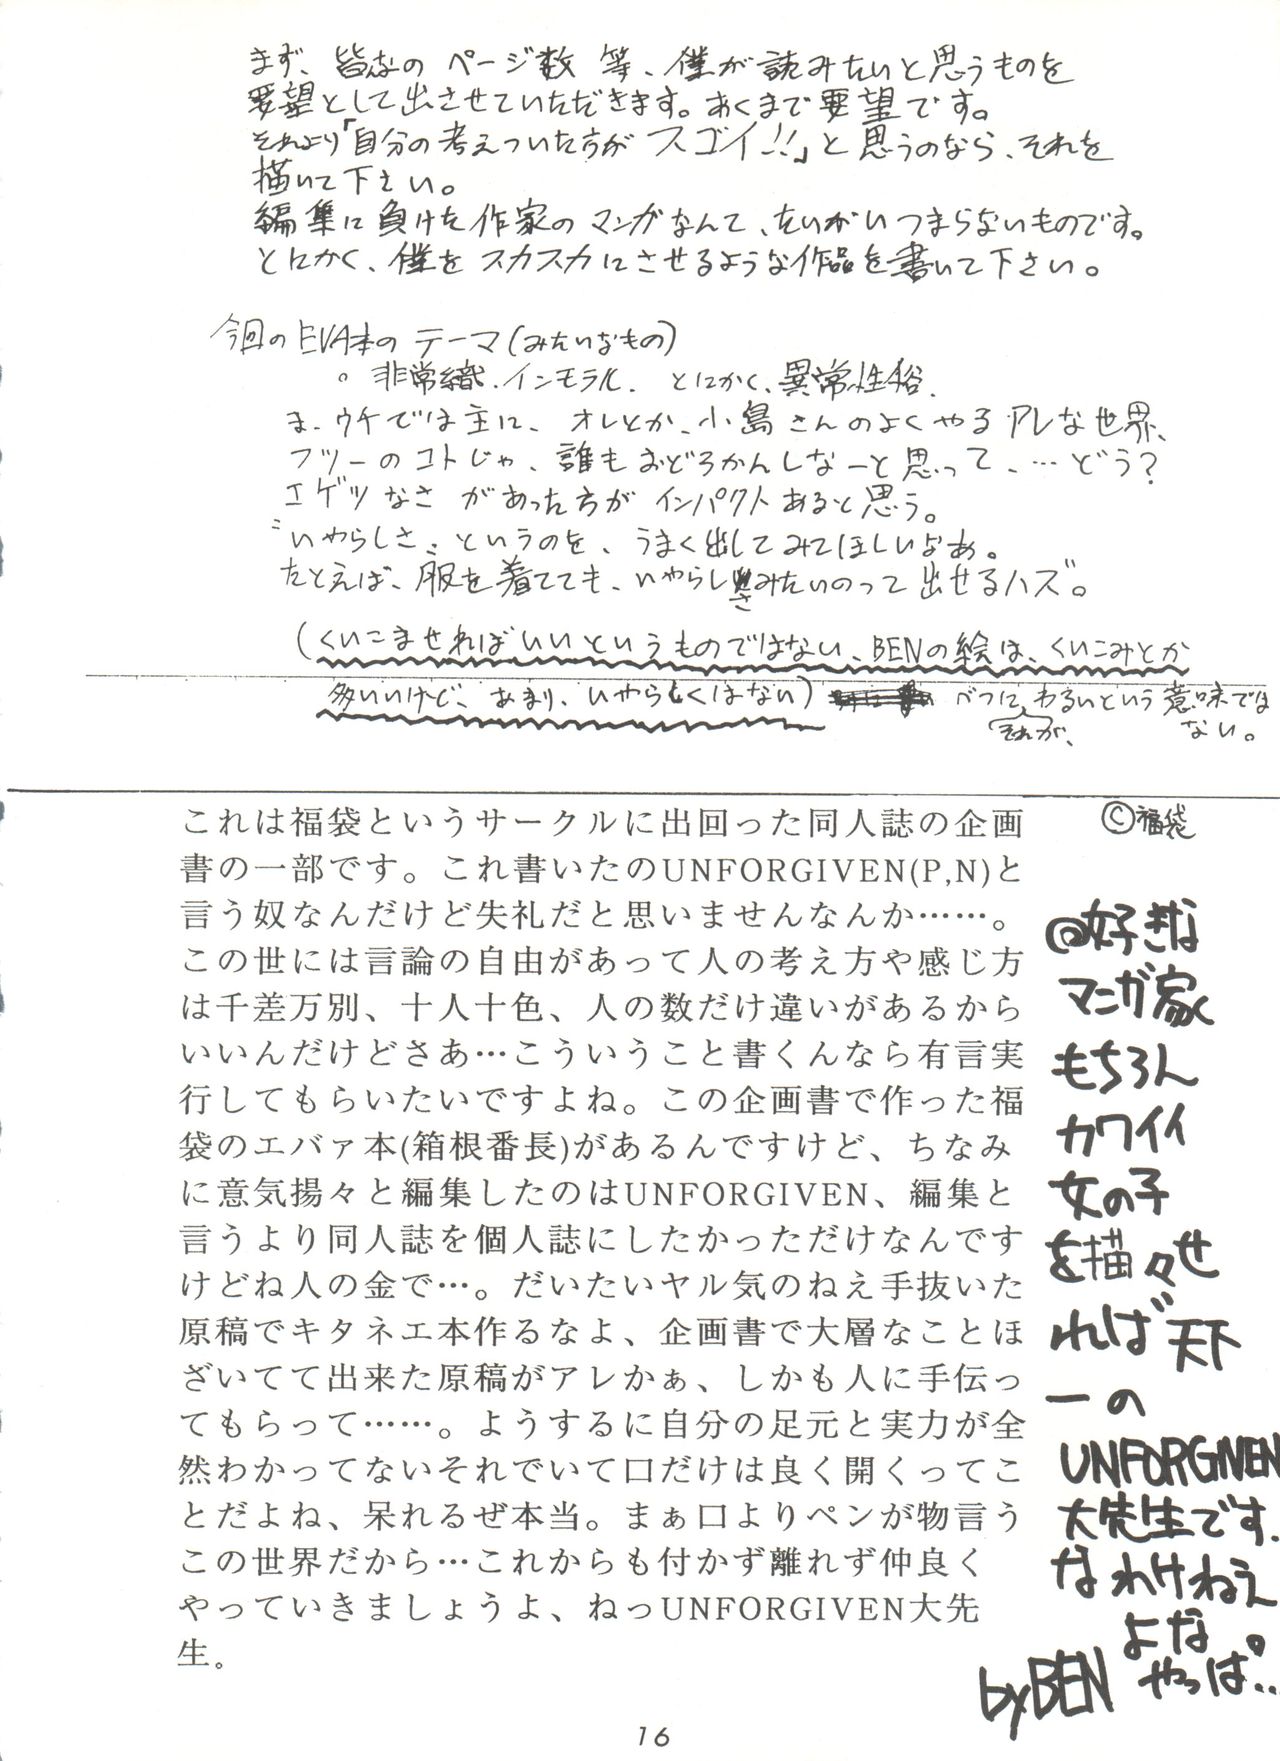 まず、皆なの ページ数 等、僕が読みたいと思うものを
要望として出させていただきます。あくまで要望です。
それより「自分の考えついた方が スゴイ!!」と思うのなら、それを
描いて下さい。
編集に負けた作家のマンガなんて、たいがいつまらないものです。
とにかく、僕をスカスカにさせるような作品を書いて下さい。
今回のEVA本のテーマ(みたいなもの)
。非常織.インモラル. とにかく、異常性俗.
ま、ウチでは主に、オレとか、小島さんのよくやるアレな世界、
フツーのコトじゃ、誰もおどろかんしなーと思って、…どう?
エゲツなさ があった方が インパクトあると思う。
"いやらしさ"というのを、うまく出してみてほしいなあ。
たとえば、服を着てても、いやらしさみたいのって出せるハズ。
(くいこませればいいというものではない、BENの絵は、くいこみとか
多いいけど、あまり、いやらしくはない) べつに、それが、わるいという意味では
ない。
これは福袋というサークルに出回った同人誌の企画
書の一部です。これ書いたのUNFORGIVEN(P,N)と
言う奴なんだけど失礼だと思いませんなんか……。
この世には言論の自由があって人の考え方や感じ方
は千差万別、十人十色、人の数だけ違いがあるから
いいんだけどさあ…こういうこと書くんなら有言実
行してもらいたいですよね。この企画書で作った福
袋のエバァ本(箱根番長)があるんですけど、ちなみ
に意気揚々と編集したのはUNFORGIVEN、編集と
言うより同人誌を個人誌にしたかっただけなんです
けどね人の金で…。だいたいヤル気のねえ手抜いた
原稿でキタネエ本作るなよ、企画書で大層なことほ
ざいてて出来た原稿がアレかぁ、しかも人に手伝っ
てもらって……。ようするに自分の足元と実力が全
然わかってないそれでいて口だけは良く開くってこ
とだよね、呆れるぜ本当。まぁ口よりペンが物言う
この世界だから…これからも付かず離れず仲良く
やっていきましょうよ、ねっUNFORGIVEN大先
生。
©福袋
@好きな
マンガ家
もちろん
カワイイ
女の子
を描々せ
れば天下
一の
UNFORGIVEN
大先生です.
なわけねえ
よな。
やっぱ…
by BEN
16